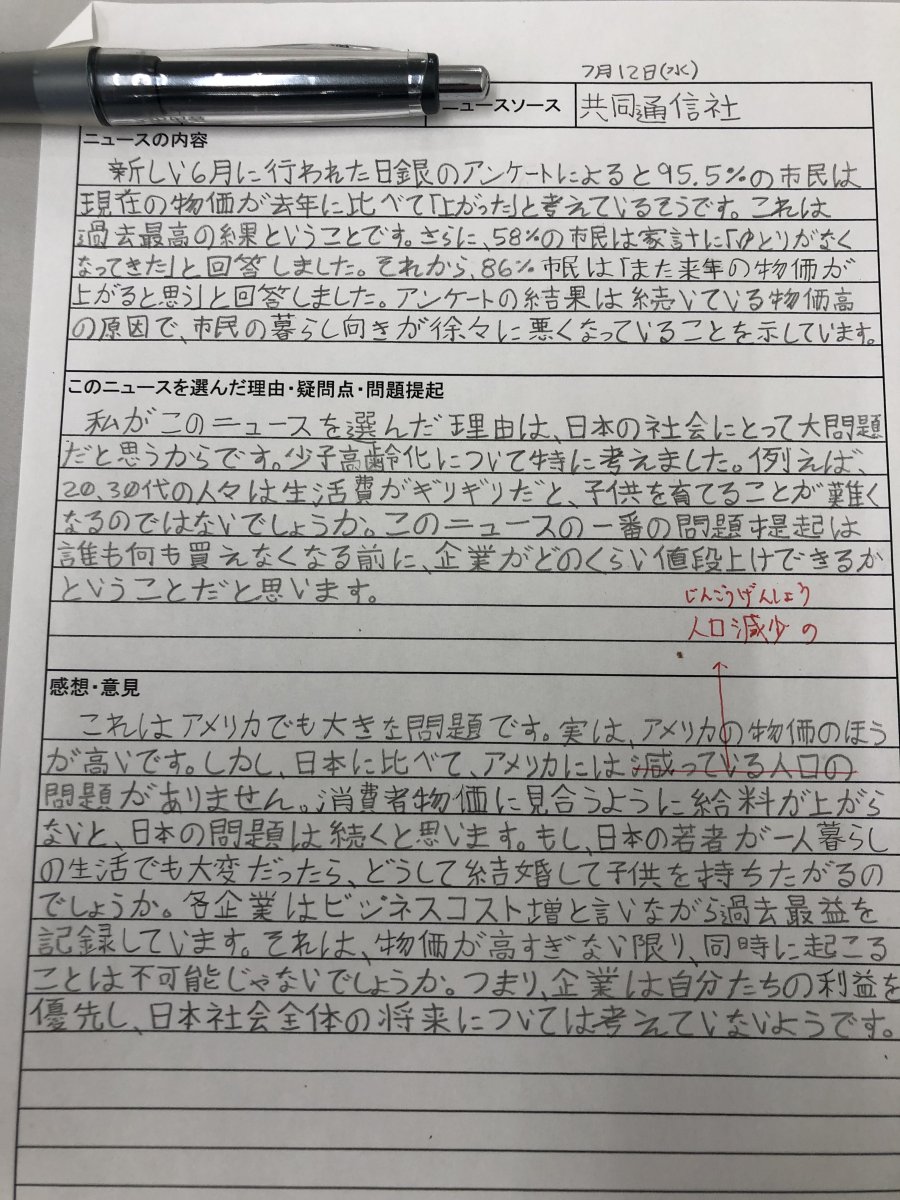 7月12日(水)
ニュースソース 共同通信社
ニュースの内容
新しい6月に行われた日銀のアンケートによると95.5%の市民は
現在の物価が去年に比べて「上がった」と考えているそうです。これは
過去最高の結果ということです。さらに、58%の市民は家計に「ゆとりがなく
なってきた」と回答しました。それから、86%市民は「また来年の物価が
上がると思う」と回答しました。アンケートの結果は続いている物価高
の原因で、市民の暮らし向きが徐々に悪くなっていることを示しています。
このニュースを選んだ理由・疑問点・問題提起
私がこのニュースを選んだ理由は、日本の社会にとって大問題
だと思うからです。少子高齢化について特に考えました。例えば、
20、30代の人々は生活費がギリギリだと、子供を育てることが難く
なるのではないでしょうか。このニュースの一番の問題提起は
誰も何も買えなくなる前に、企業がどのくらい値段上げできるか
ということだと思います。
じんこうげんしょう
人口減少の
感想・意見
これはアメリカでも大きな問題です。実は、アメリカの物価のほう
が高いです。しかし、日本に比べて、アメリカには減っている人口の
問題がありません。消費者物価に見合うように給料が上がら
ないと、日本の問題は続くと思います。もし、日本の若者が一人暮らし
の生活でも大変だったら、どうして結婚して子供を持ちたがるの
でしょうか。各企業はビジネスコスト増と言いながら過去最益を
記録しています。それは、物価が高すぎない限り、同時に起こる
ことは不可能じゃないでしょうか。つまり、企業は自分たちの利益を
優先し、日本社会全体の将来については考えていないようです。